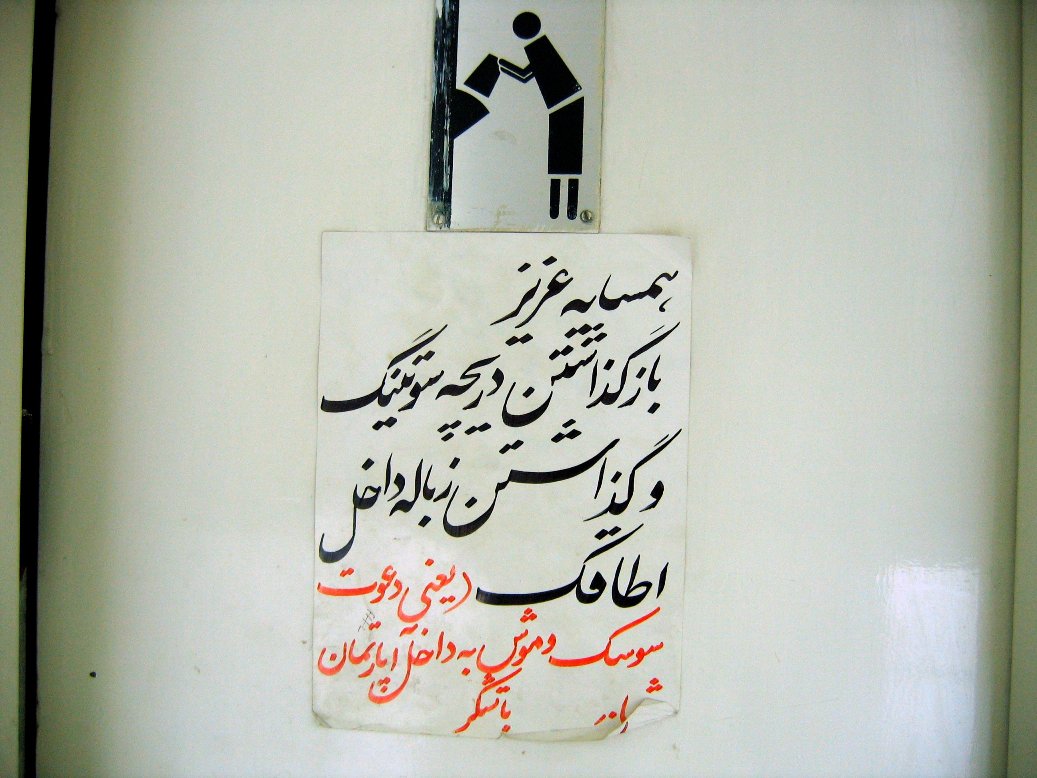 همسایه عزیز
باز گذاشتن دریچه شوتینگ
و گذاشتن زباله داخل
اطاقک (یعنی دعوت
سوسک و موش به داخل آپارتمان
باتشکر